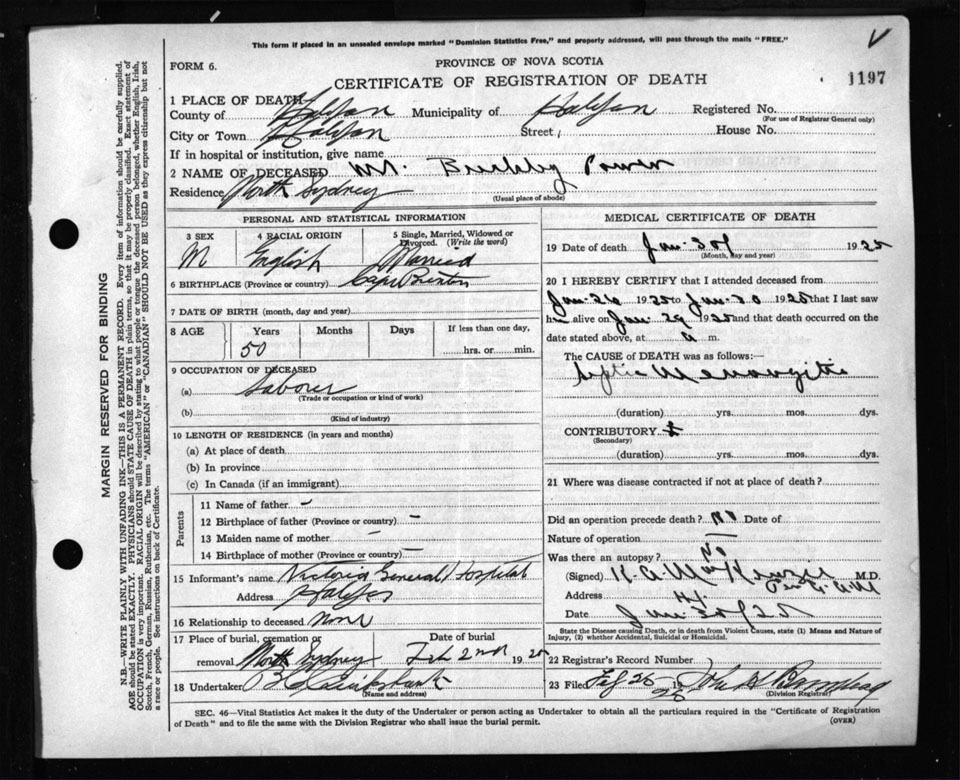 This form if placed in an unsealed envelope marked "Dominion Statistics Free," and properly addressed, will pass through the mails "FREE."
FORM 6.
PROVINCE OF NOVA SCOTIA
CERTIFICATE OF REGISTRATION OF DEATH
1197
1 PLACE OF DEATH
County of Halifax Municipality of Halifax Registered No.
(For use of Registrar General only)
City or Town Halifax Street House No.
If in hospital or institution, give name
2 NAME OF DECEASED Power
Residence North Sydney
(Usual place of abode)
PERSONAL AND STATISTICAL INFORMATION
3 SEX 4 RACIAL ORIGIN 5 Single, Married, Widowed or Divorced. (Write the word)
M English Married
6 BIRTHPLACE (Province or country) Cape Breton
7 DATE OF BIRTH (month, day and year)
8 AGE Years Months Days If less than one day,
50 hrs. or min.
9 OCCUPATION OF DECEASED
(a) Laborer
(Trade or occupation or kind of work)
(b)
(Kind of industry)
10 LENGTH OF RESIDENCE (in years and months)
(a) At place of death
(b) In province
(c) In Canada (if an immigrant)
Parents
11 Name of father –
12 Birthplace of father (Province or country) –
13 Maiden name of mother –
14 Birthplace of mother (Province or country) –
15 Informant's name Victoria General Hospital
Address Halifax
16 Relationship to deceased None
17 Place of burial, cremation or removal North Sydney
Date of burial Feb 2nd 1925
18 Undertaker
(Name and address)
MEDICAL CERTIFICATE OF DEATH
19 Date of death Jan. 30/ 1925
(Month, day and year)
20 I HEREBY CERTIFY that I attended deceased from
Jan-26 1925 to Jan-30 1925 that I last saw
h alive on Jan 29 1925 and that death occurred on
date stated above, at a m.
The CAUSE OF DEATH was as follows:
Septic Meningitis
(duration) yrs. mos. dys.
CONTRIBUTORY
(Secondary)
(duration) yrs. mos. dys.
21 Where was disease contracted if not at place of death?
Did an operation precede death? No Date of
Nature of operation –
Was there an autopsy? No
(Signed) K. A. MacKenzie M.D.
Address Hx.
Date Jan 30/25
State the Disease causing Death, or in death from Violent Causes, state (1) Means and Nature of Injury, (2) whether Accidental, Suicidal or Homicidal.
22 Registrar's Record Number
23 Filed Feb 25 19
(Division Registrar)
SEC. 46—Vital Statistics Act makes it the duty of the Undertaker or person acting as Undertaker to obtain all the particulars required in the "Certificate of Registration
of Death" and to file the same with the Division Registrar who shall issue the burial permit.
(OVER)
MARGIN RESERVED FOR BINDING
N.B.—WRITE PLAINLY WITH UNFADING INK—THIS IS A PERMANENT RECORD. Every item of information should be carefully supplied.
AGE should be stated EXACTLY. PHYSICIANS should STATE CAUSE OF DEATH in plain terms, so that it may be properly classified. Exact statement of
OCCUPATION is very important. RACIAL ORIGIN will be described by stating to what people or tongue the deceased person belonged, whether English, Irish,
Scotch, French, German, Russian, Ruthenian, etc. The terms "AMERICAN" or "CANADIAN" SHOULD NOT BE USED as they express citizenship but not
a race or people. See instructions on back of Certificate.